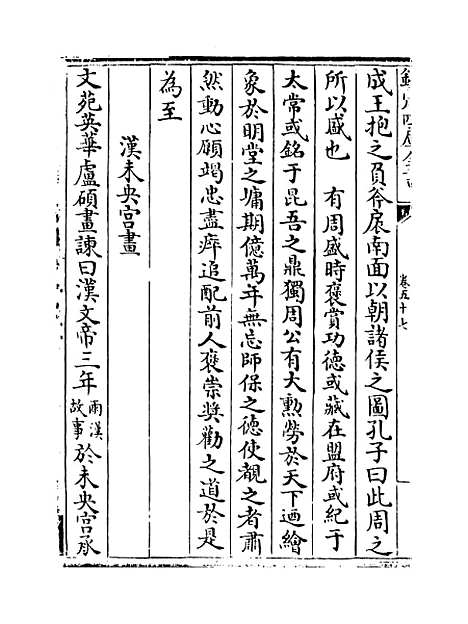 欽定四庫全書
卷五十七
成王抱之負斧扆南面以朝諸侯之圖孔子曰此周之
所以盛也 有周盛時褒賞功德或藏在盟府或紀于
太常或銘于昆吾之鼎獨周公有大勲勞於天下迺繪
象於明堂之墉期億萬年無忘師保之德使覩之者肅
然動心願竭忠盡瘁追配前人褒崇奨勸之道於是
為至
漢未央宫畫
文苑英華盧碩畫諫曰漢文帝三年兩漢故事於未央宫承